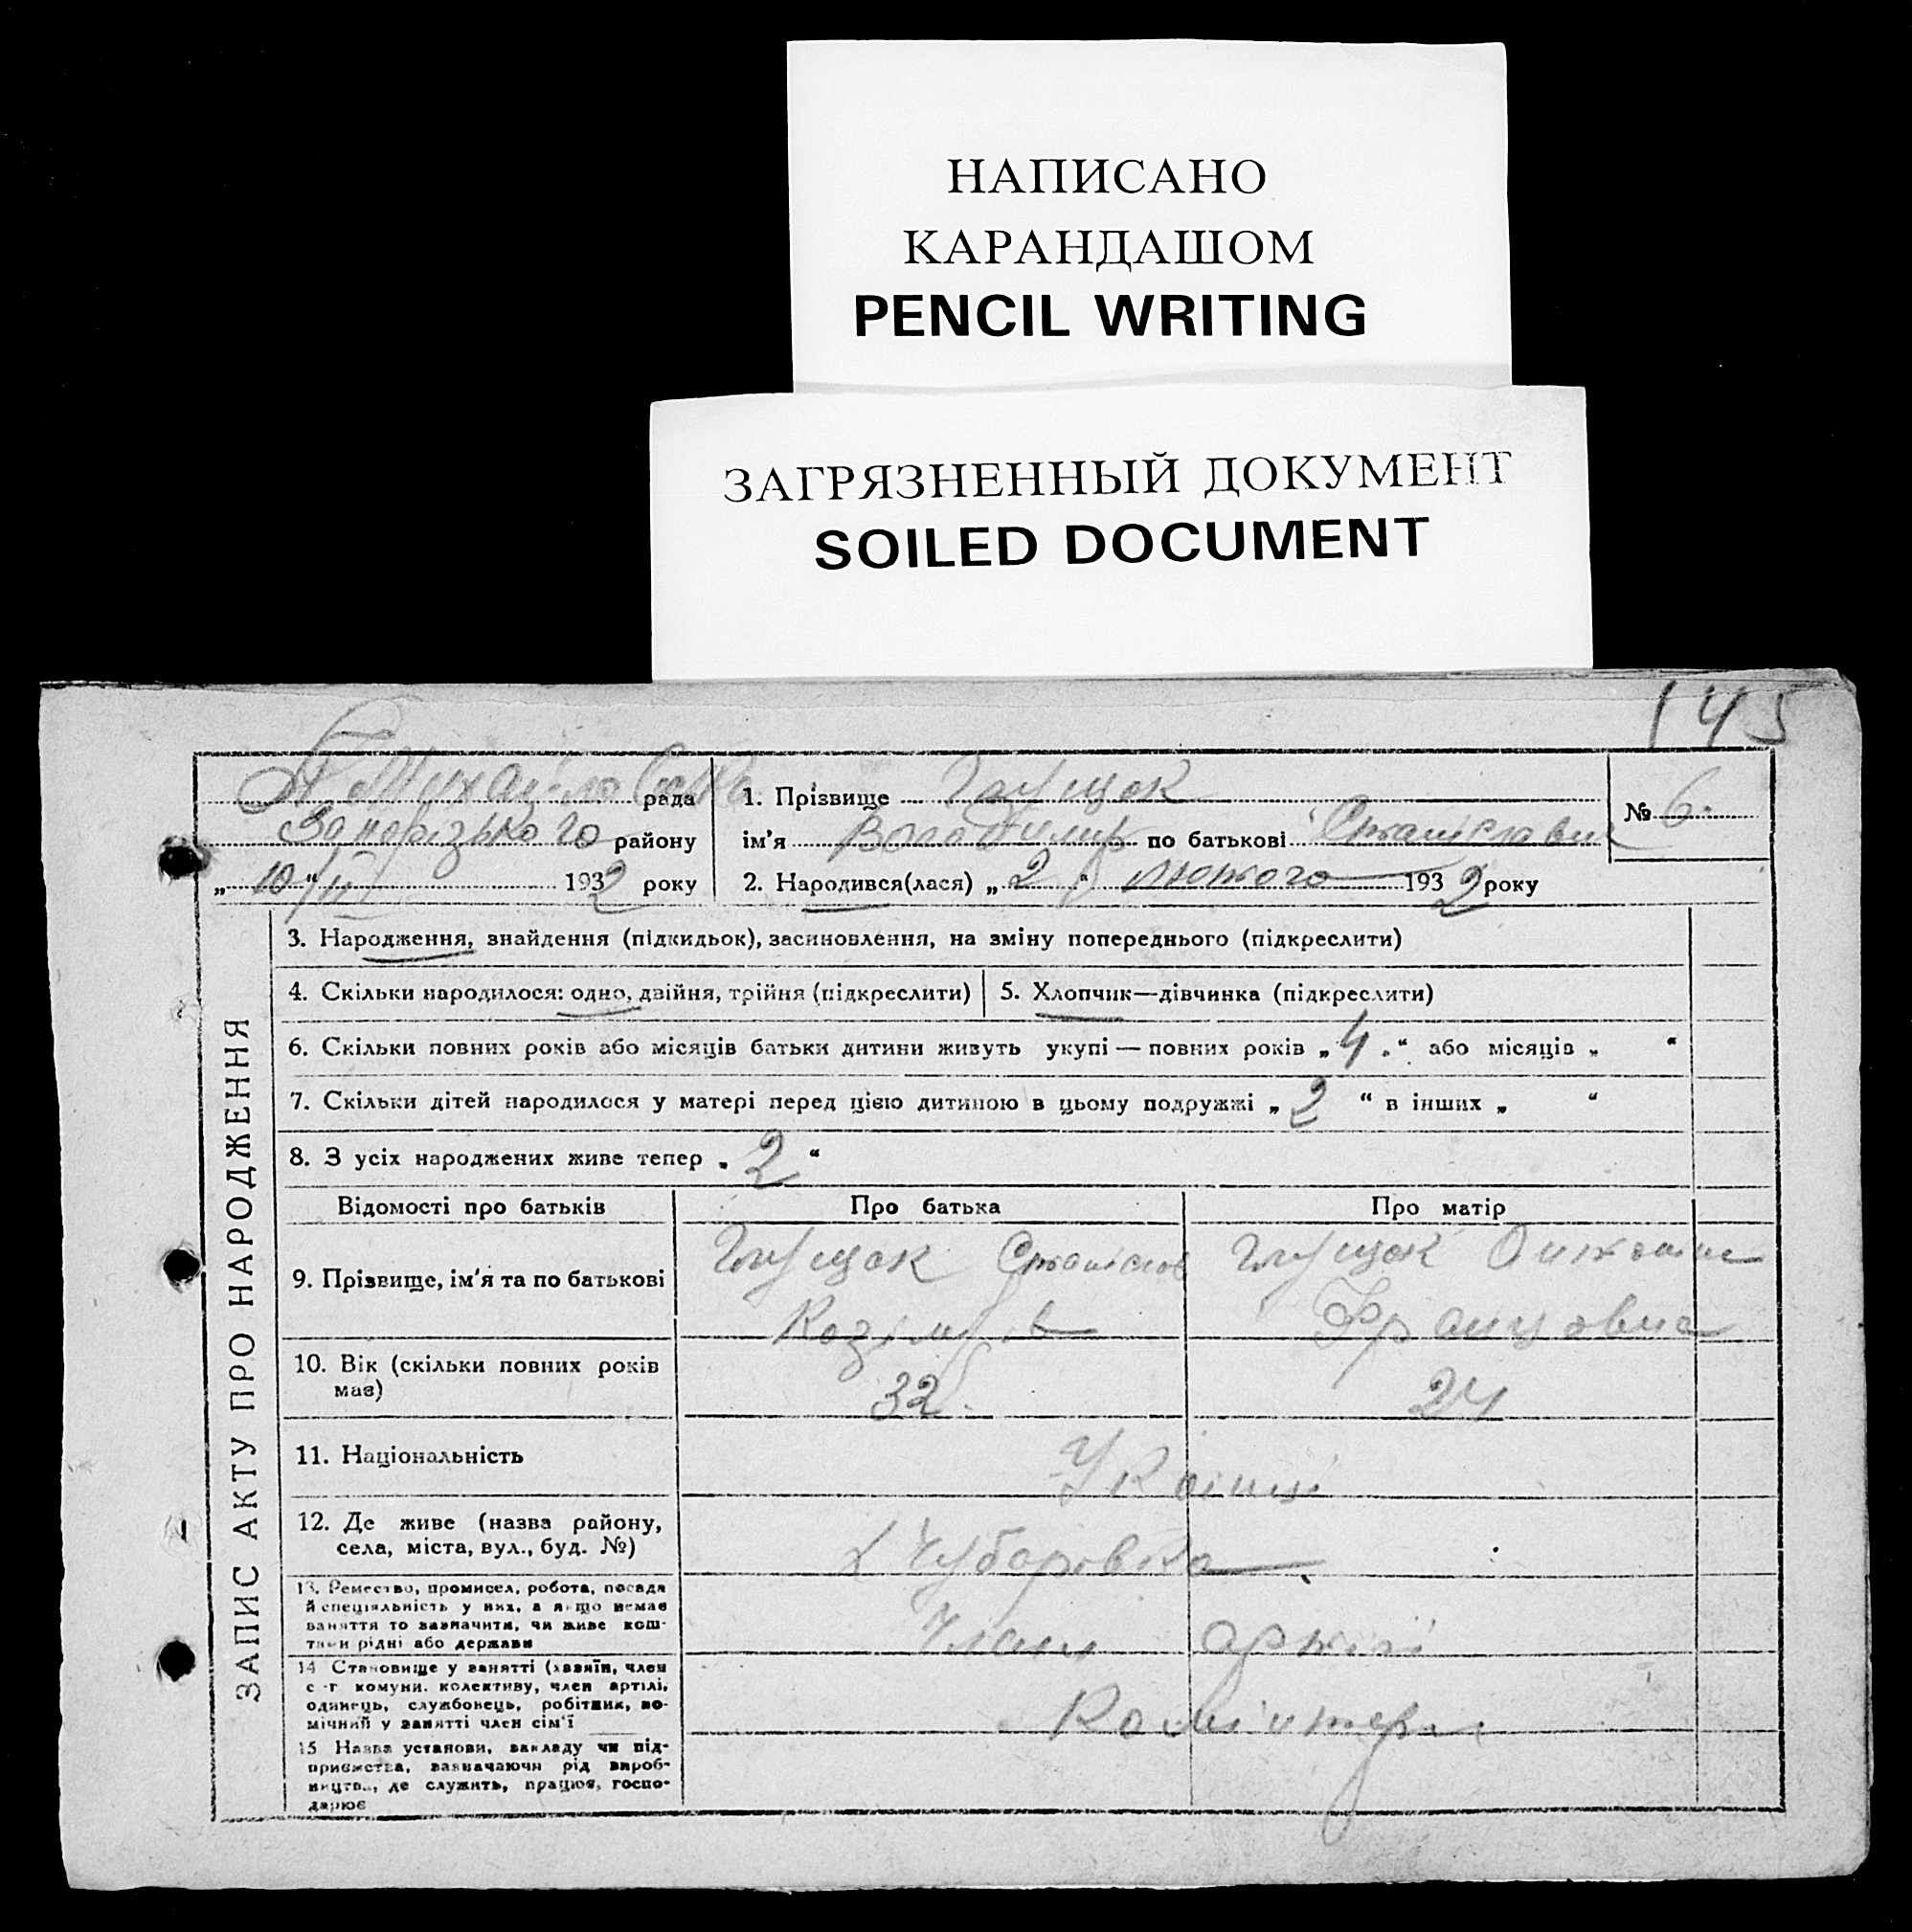 НАПИСАНО
КАРАНДАШОМ
PENCIL WRITING
ЗАГРЯЗНЕННЫЙ ДОКУМЕНТ
SOILED DOCUMENT
145
рада
району
„ 10 “ 1932 року
1. Прізвище
ім'я Володимир по батькові Станіславів
№ 6.
2. Народився(лася) „ 2 “ лютого 1932 року
ЗАПИС АКТУ ПРО НАРОДЖЕННЯ
3. Народження, знайдення (підкидьок), засиновлення, на зміну попереднього (підкреслити)
4. Скільки народилося: одно, двійня, трійня (підкреслити)
5. Хлопчик—дівчинка (підкреслити)
6. Скільки повних років або місяців батьки дитини живуть укупі — повних років „ 4. “ або місяців „ “
7. Скільки дітей народилося у матері перед цією дитиною в цьому подружжі „ 2 “ в інших „ “
8. З усіх народжених живе тепер „ 2 “
Відомості про батьків Про батька Про матір
9. Прізвище, ім'я та по батькові
Станіслав
Францовна
10. Вік (скільки повних років
має)
32. 24
11. Національність
12. Де живе (назва району,
села, міста, вул., буд. №)
Чубарівка
13. Ремество, промисел, робота, посада
й спеціяльність у них, а якщо немає
заняття то зазначити, чи живе кош-
тами рідні або держави
Член артілі
14 Становище у занятті (хазяїн, член
с.-г комуни. колективу, член артілі,
одинець, службовець, робітник, по-
мічний у занятті член сім'ї
Комінтерн
15 Назва установи, закладу чи під-
приємства, зазначаючи рід вироб-
ництва, де служить, працює, госпо-
дарює